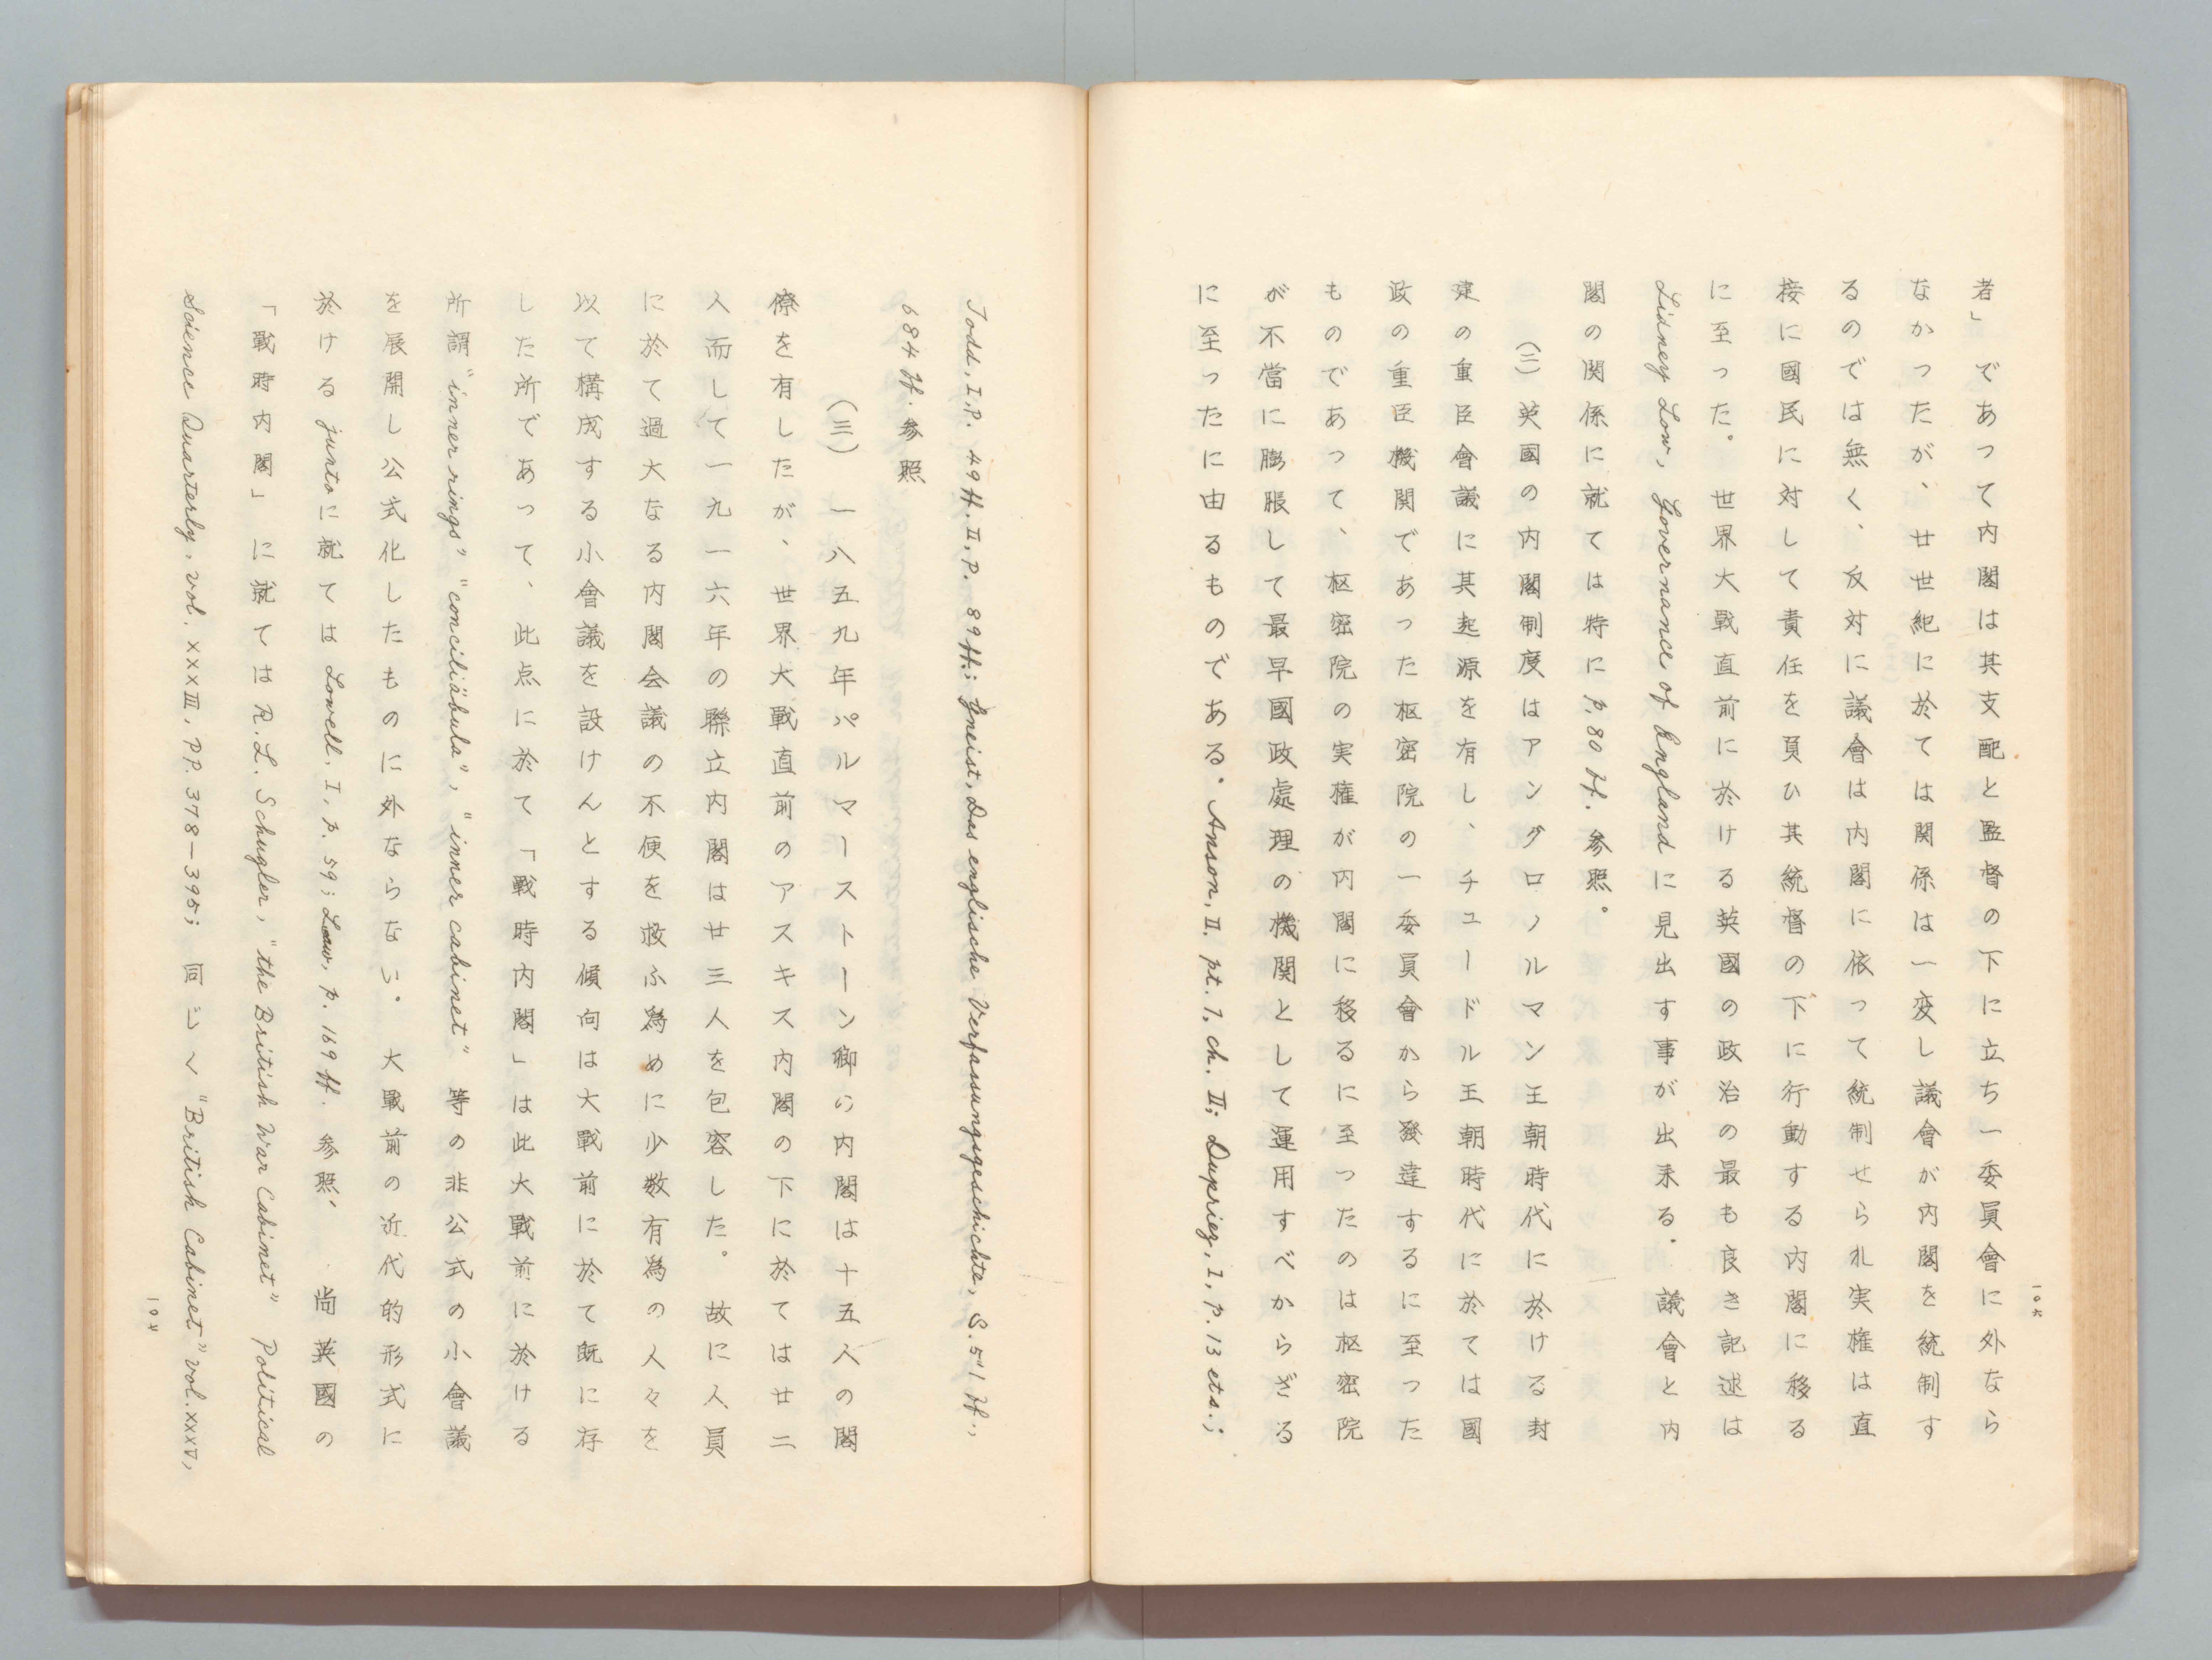 者」であって内閣は其支配と監督の下に立ち一委員會に外なら
なかったが、廿世紀に於ては関係は一変し議會が内閣を統制す
るのでは無く、反対に議會は内閣に依って統制せられ実権は直
接に國民に対して責任を負ひ其統督の下に行動する内閣に移る
に至った。世界大戰直前に於ける英國の政治の最も良き記述は
Sidney Low, Governance of England に見出す事が出来る。議會と内
閣の関係に就ては特に P. 80 ff. 参照。
(二) 英國の内閣制度はアングロノルマン王朝時代に於ける封
建の重臣會議に其起源を有し、チュードル王朝時代に於ては國
政の重臣機関であった枢密院の一委員會から發達するに至った
ものであって、枢密院の実権が内閣に移るに至ったのは枢密院
が不當に膨脹して最早國政處理の機関として運用すべからざる
に至ったに由るものである。Anson, II. pt. 1, ch. II; Dupriez, I, P. 13 ets.;
一〇六
Todd, I, P. 49 ff. II, P. 89 ff.; Gneist, Das englische Verfassungsgeschichte, S. 51 ff.,
684 ff. 参照
(三) 一八五九年パルマーストーン卿の内閣は十五人の閣
僚を有したが、世界大戰直前のアスキス内閣の下に於ては廿二
人而して一九一六年の聯立内閣は廿三人を包容した。故に人員
に於て過大なる内閣会議の不便を救ふ為めに少数有為の人々を
以て構成する小會議を設けんとする傾向は大戰前に於て既に存
した所であって、此点に於て「戰時内閣」は此大戰前に於ける
所謂 "inner rings" "conciliäbula", "inner cabinet" 等の非公式の小會議
を展開し公式化したものに外ならない。大戰前の近代的形式に
於ける junto に就ては Lowell, I, P. 59; Law, P. 169 ff. 参照、尚英國の
「戰時内閣」に就ては R. L. Schugler, "the British War Cabinet" Political
Science Quarterly, vol. XXXIII, PP. 378-395; 同じく "British Cabinet" vol. XXXV,
一〇七